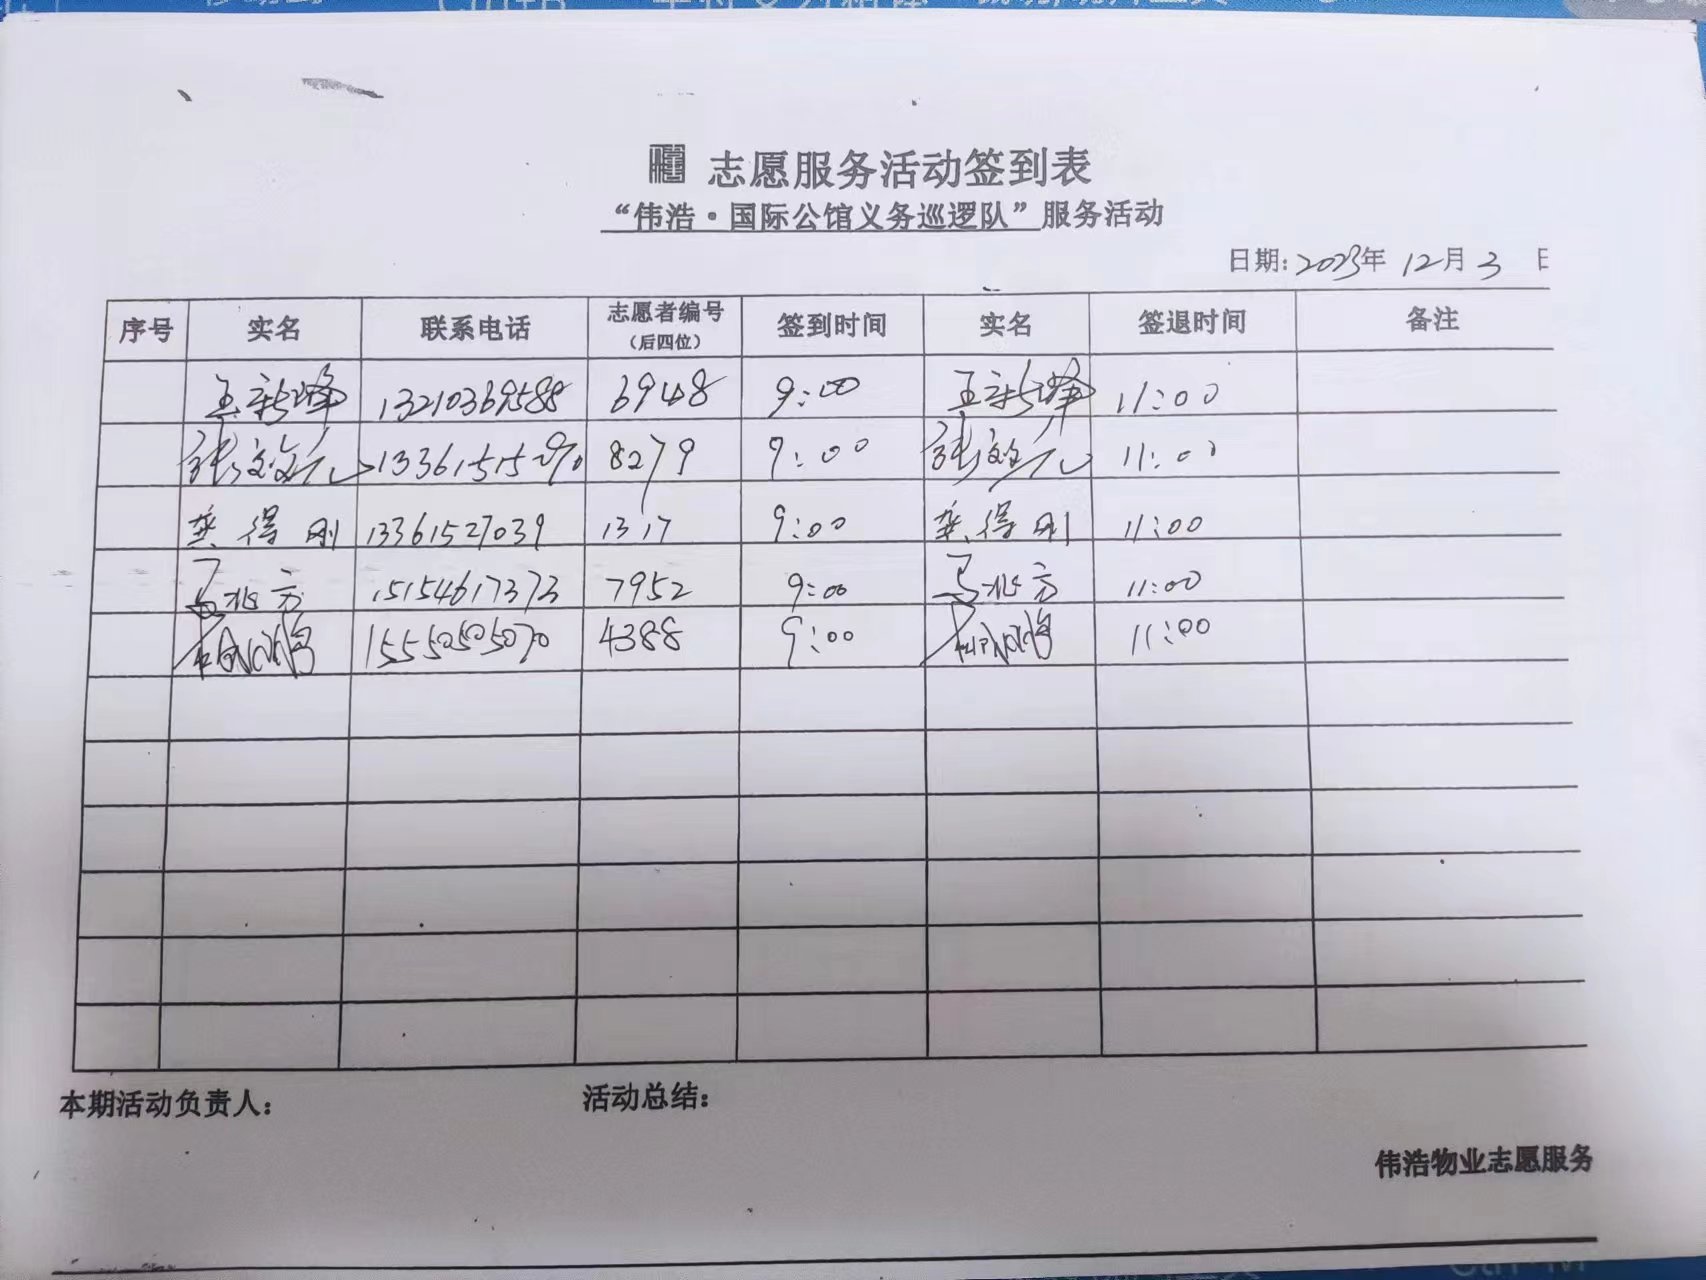 志愿服务活动签到表
“伟浩·国际公馆义务巡逻队”服务活动
日期:2023年 12月 3 日
序号 实名 联系电话 志愿者编号（后四位） 签到时间 实名 签退时间 备注
王新峰 13210369588 6948 9:00 王新峰 11:00
张效文 8279 9:00 张效文 11:00
龚得刚 13361527039 1317 9:00 龚得刚 11:00
马兆方 15154617373 7952 9:00 马兆方 11:00
15550505070 4388 9:00 11:00
本期活动负责人： 活动总结：
伟浩物业志愿服务